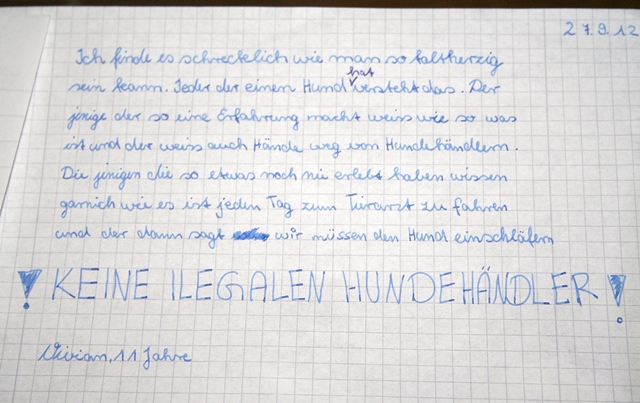 27.9.12
Ich finde es schrecklich wie man so kaltherzig
sein kann. Jeder der einen Hund hat versteht das. Der
jinige der so eine Erfahrung macht weiss wie so was
ist und der weiss auch Hände weg von Hundehändlern.
Die jinigen die so etwas noch nie erlebt haben wissen
garnich wie es ist jeden Tag zum Tirarzt zu fahren
und der dann sagt wir müssen den Hund einschläfern
! KEINE ILEGALEN HUNDEHÄNDLER !
Vivian, 11 Jahre